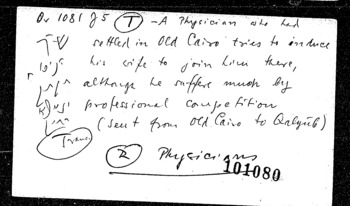 Or 1081 J 5 (T) - A Physician who had
settled in Old Cairo tries to induce
his wife to join him there,
although he suffers much by
professional competition
(sent from Old Cairo to Qalyūb)
Physicians
101080